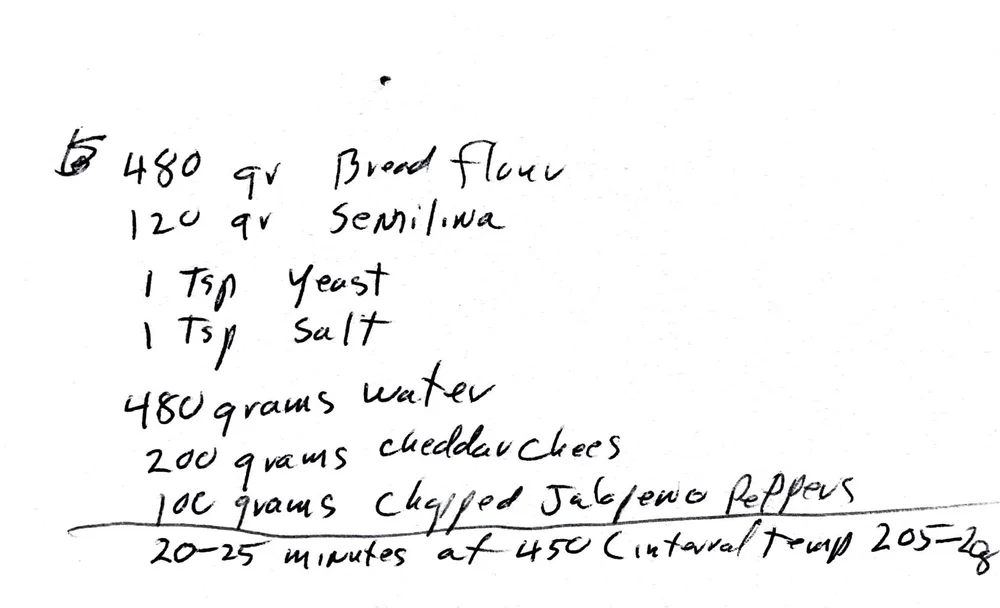 480 gr Bread flour
120 gr Semilina
1 Tsp Yeast
1 Tsp Salt
480 grams water
200 grams cheddar chees
100 grams Chopped Jalapeno Peppers
20-25 minutes at 450 (internal temp 205-208